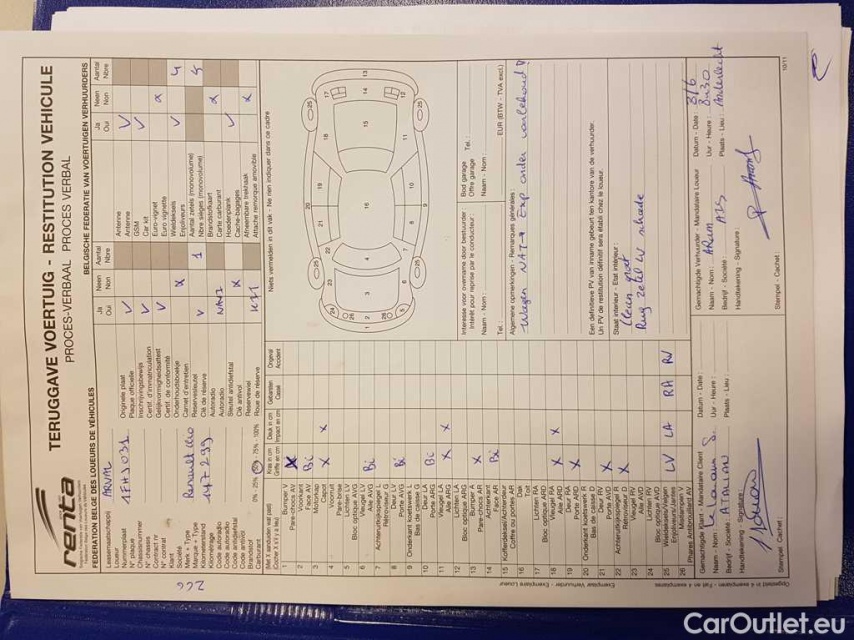 renta
TERUGGAVE VOERTUIG - RESTITUTION VEHICULE
PROCES-VERBAAL PROCES VERBAL
FEDERATION BELGE DES LOUEURS DE VÉHICULES
BELGISCHE FEDERATIE VAN VOERTUIGEN VERHUURDERS
Leasemaatschappij
Loueur ARVAL
Nummerplaat
N° plaque 1FHJ031
Chassisnummer
N° chassis
Contract nr
N° contrat
Klant
Société
Merk + Type
Marque + Type Renault Clio
Kilometerstand
Kilométrage 147299
Code autoradio
Code autoradio
Code antidiefstal
Code antivol
Brandstof
Carburant 0% - 25% - 50% - 75% - 100%
Ja Oui
Neen Non
Aantal Nbre
Originele plaat
Plaque officielle V
Inschrijvingsbewijs
Certif. d'immatriculation V
Gelijkvormigheidsattest
Certif. de conformité V
Onderhoudsboekje
Carnet d'entretien X
Reservesleutel
Clé de réserve V 1
Autoradio
Autoradio NAVI
Sleutel antidiefstal
Clé antivol X
Reservewiel
Roue de réserve KIT
Ja Oui
Neen Non
Aantal Nbre
Antenne
Antenne V
GSM
Car kit V
Euro-vignet
Euro vignette X
Wieldeksels
Enjoliveurs V 4
Aantal zetels (monovolume)
Nbre sièges (monovolume) 4
Brandstofkaart
Carte carburant X
Hoedenplank
Cache-bagages V
Afneembare trekhaak
Attache remorque amovible X
Niets vermelden in dit vak - Ne rien indiquer dans ce cadre
(Met X aanduiden wat past)
(Cocher X s'il y a lieu)
Kras in cm
Griffe en cm
Deuk in cm
Impact en cm
Gebarsten
Cassé
Original
Accident
1 Bumper V
Pare-chocs AV X
2 Voorkant
Face AV Bi
3 Motorkap
Capot X X
4 Voorruit
Pare-brise
5 Lichten LV
Bloc optique AVG
6 Vleugel LV
Aile AVG Bi
7 Achteruitkijkspiegel L
Rétroviseur G
8 Deur LV
Porte AVG Bi
9 Onderkant koetswerk L
Bas de caisse G
10 Deur LA
Porte ARG Bi
11 Vleugel LA
Aile ARG X X
12 Lichten LA
Bloc optique ARG
13 Bumper A
Pare-chocs AR X
14 Achterkant
Face AR Bi
15 Kofferdeksel/Achterruiten
Coffre ou porte AR
16 Dak
Toit
17 Lichten RA
Bloc optique ARD
18 Vleugel RA
Aile ARD X X
19 Deur RA
Porte ARD
20 Onderkant koetswerk R
Bas de caisse D X
21 Deur RV
Porte AVD
22 Achteruitkijkspiegel R
Rétroviseur D X
23 Vleugel RV
Aile AVD X
24 Lichten RV
Bloc optique AVD
25 Wieldeksels/Velgen LV LA RA RV
26 Mistlampen V
Phares Antibrouillard AV
Interesse voor overname door bestuurder
Intérêt pour reprise par le conducteur :
Naam - Nom :
Tel. :
Bod garage
Offre garage :
Naam - Nom :
Tel. :
EUR (BTW - TVA excl.)
Algemene opmerkingen - Remarques générales :
Wagen NAT → Exp onder voorbehoud !
Een definitieve PV van inname gebeurt ten kantore van de verhuurder.
Un PV de restitution définitif sera établi chez le loueur.
Staat interieur - Etat intérieur :
Clean
Rug zetel LV schade
Gemachtigde Client - Mandataire Client
Datum - Date :
Naam - Nom :
Uur - Heure :
Bedrijf - Société : ATALIAN
Plaats - Lieu :
Handtekening - Signature :
Stempel - Cachet :
Gemachtigde Verhuurder - Mandataire Loueur
Datum - Date : 8/6
Naam - Nom :
Uur - Heure : 8:30
Bedrijf - Société : ATS
Plaats - Lieu : Anderlecht
Handtekening - Signature :
Stempel - Cachet :
Opgesteld in 4 exemplaren - Fait en 4 exemplaires
Exemplaar Verhuurder - Exemplaire Loueur
10/11
206
CarOutlet.eu